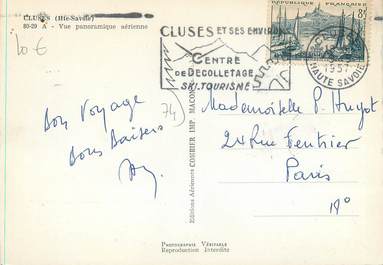 CLUSES (Hte-Savoie)
80-29 A - Vue panoramique aérienne
10 €
CLUSES ET SES ENVIRONS
CENTRE
DE DECOLLETAGE
SKI. TOURISME
REPUBLIQUE FRANÇAISE
8F
CLUSES
1957
HAUTE SAVOIE
74)
Bon Voyage
Bons Baisers
Editions Aériennes COMBIER IMP. MACON
Mademoiselle P. Huyot
24 Rue
Paris
Photographie Véritable
Reproduction Interdite